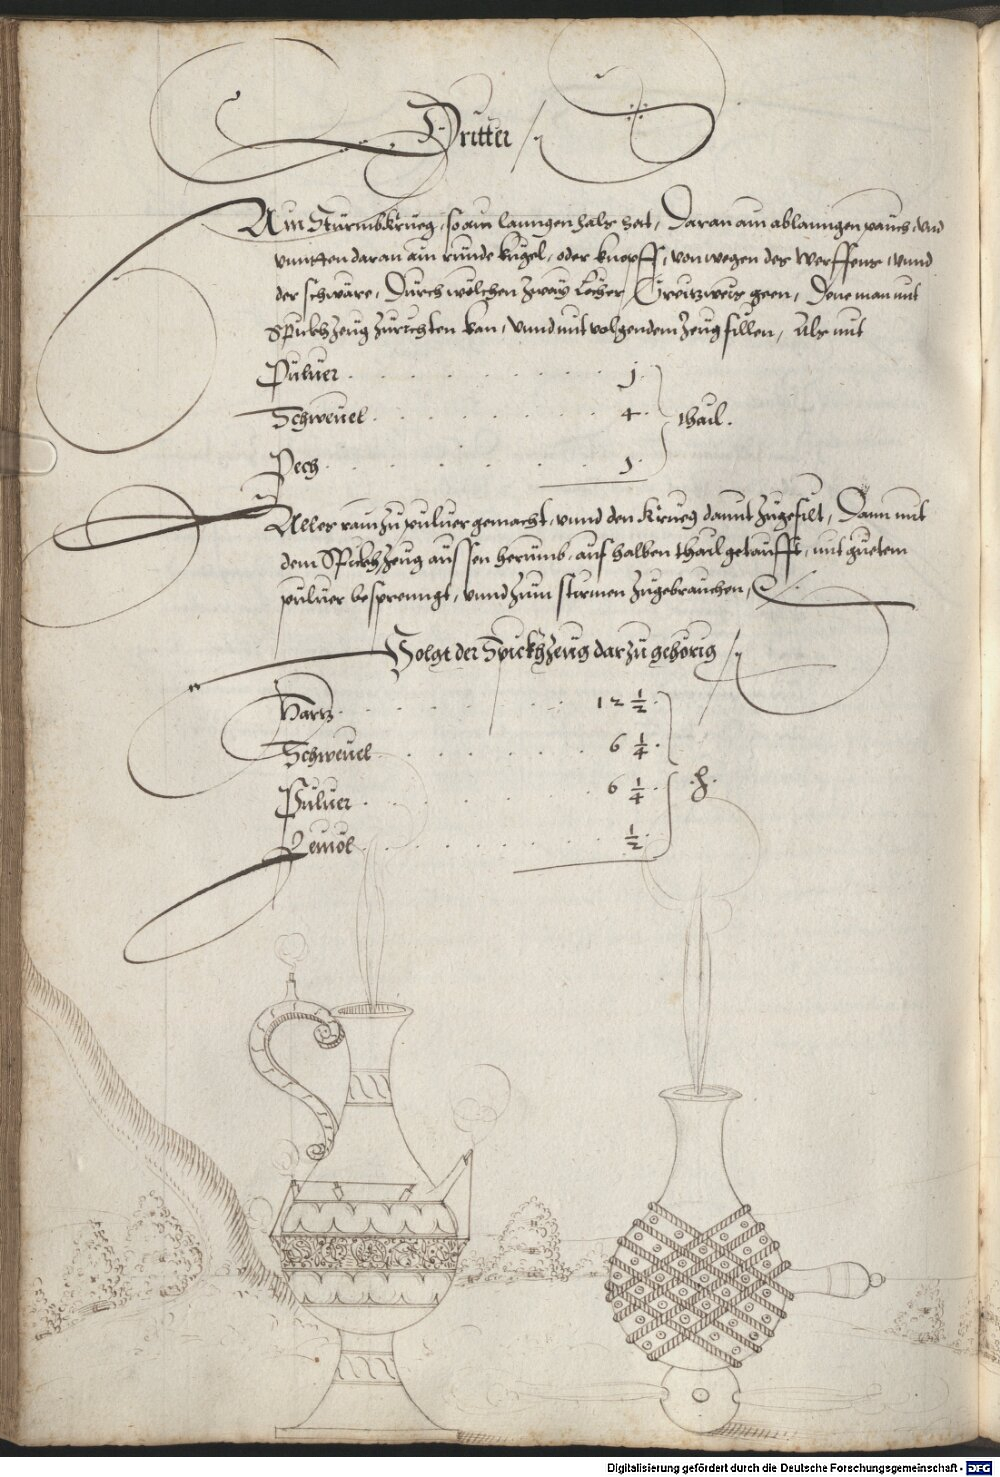 Dritter
Ain Sturmbkrueg, so ain lanngen hals hat, Daran ain ablanngen pauch, vnd
vnntten daran ain runde kugel, oder knopff, von wegen des werffens, vnnd
der schwäre, Durch wölchen zway Löcher Creutzweis geen, Dene man mit
Spickhzeug zurichten kan, vnnd mit volgendem zeug fillen, Als mit
Puluer . . . . . . . . 1.
Schweuel . . . . . . . 4. thail.
Pech . . . . . . . . 1.
Alles rain zu puluer gemacht, vnnd den Krueg damit zugefilt, Dann mit
dem Spickhzeug aussen herumb, auf halben thail getaufft, mit guetem
puluer besprenngt, vnnd zum stirmen zugebrauchen,
Volgt der Spickhzeug darzu gehörig
Hartz . . . . . . . 12 1/2.
Schweuel . . . . . . 6 1/4.
Puluer . . . . . . . 6 1/4.
Leinöl . . . . . . . 1/2.
Digitalisierung gefördert durch die Deutsche Forschungsgemeinschaft - DFG